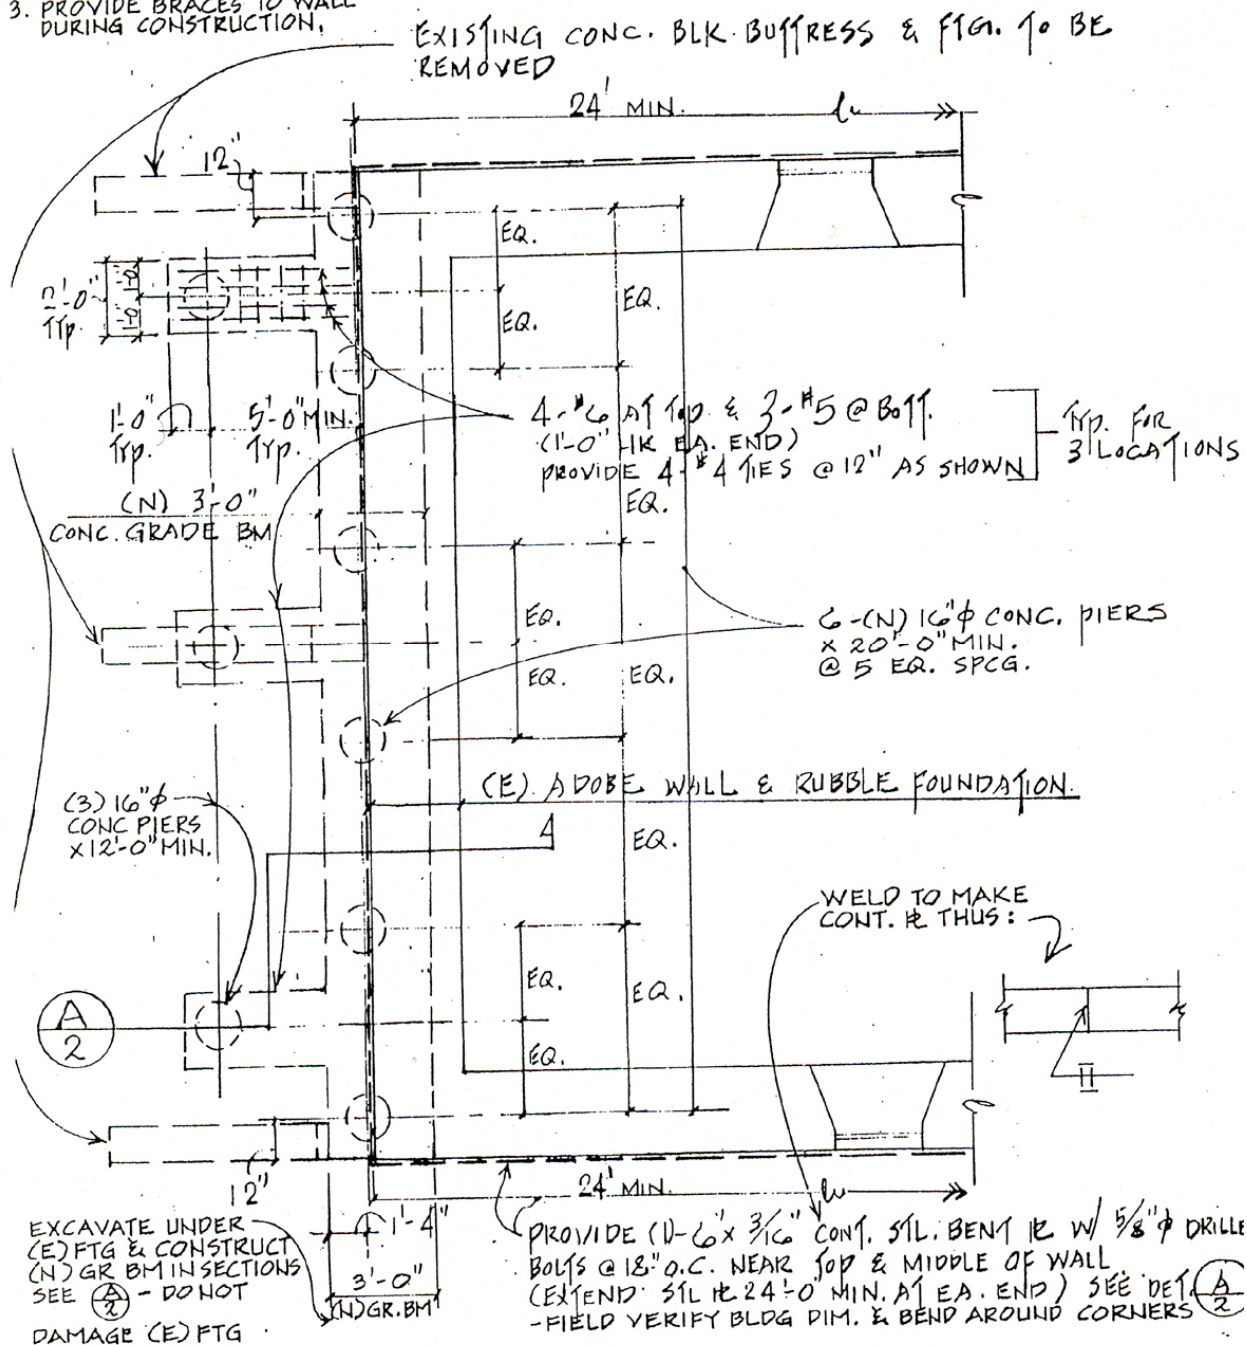 3. PROVIDE BRACES TO WALL
DURING CONSTRUCTION.
EXISTING CONC. BLK. BUTTRESS & FTG. TO BE
REMOVED
24' MIN.
12"
EQ.
EQ.
EQ.
2'-0"
TYP.
1'-0"
1'-0"
1'-0"
TYP.
5'-0" MIN.
TYP.
4-#6 AT TOP & 3-#5 @ BOTT.
(1'-0" HK EA. END)
PROVIDE 4-#4 TIES @ 12" AS SHOWN
TYP. FOR
3 LOCATIONS
(N) 3'-0"
CONC. GRADE BM
EQ.
EQ.
EQ.
EQ.
6-(N) 16"φ CONC. PIERS
x 20'-0" MIN.
@ 5 EQ. SPCG.
(E) ADOBE WALL & RUBBLE FOUNDATION.
(3) 16"φ
CONC PIERS
x 12'-0" MIN.
EQ.
WELD TO MAKE
CONT. PL THUS:
A
2
EQ.
EQ.
EQ.
12"
24' MIN.
1'-4"
3'-0"
(N) GR. BM
EXCAVATE UNDER
(E) FTG & CONSTRUCT
(N) GR BM IN SECTIONS
SEE A/2 - DO NOT
DAMAGE (E) FTG
PROVIDE (1)-6" x 3/16" CONT. STL. BENT PL W/ 5/8"φ DRILLE
BOLTS @ 18" O.C. NEAR TOP & MIDDLE OF WALL
(EXTEND STL PL 24'-0" MIN. AT EA. END) SEE DET. A/2
-FIELD VERIFY BLDG DIM. & BEND AROUND CORNERS